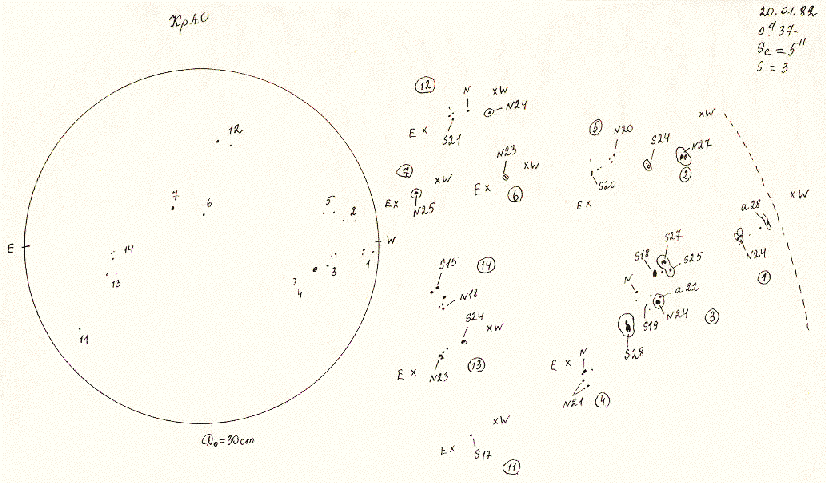 КрАО
20.01.82
9ʰ 37
Sc = 5"
S = 3
12
7
6
5
2
E
W
1
3
4
14
13
11
D₀ = 30cm
12
N
xW
N24
E x
S21
7
xW
E x
N25
N23
xW
E x
6
5
N20
S24
xW
N21
2
E x
a28
xW
N24
1
S27
S18
S25
N
a22
S19
N24
3
S28
S15
14
N18
S24
xW
E x
N23
13
E x
N
N21
4
xW
E x
S17
11